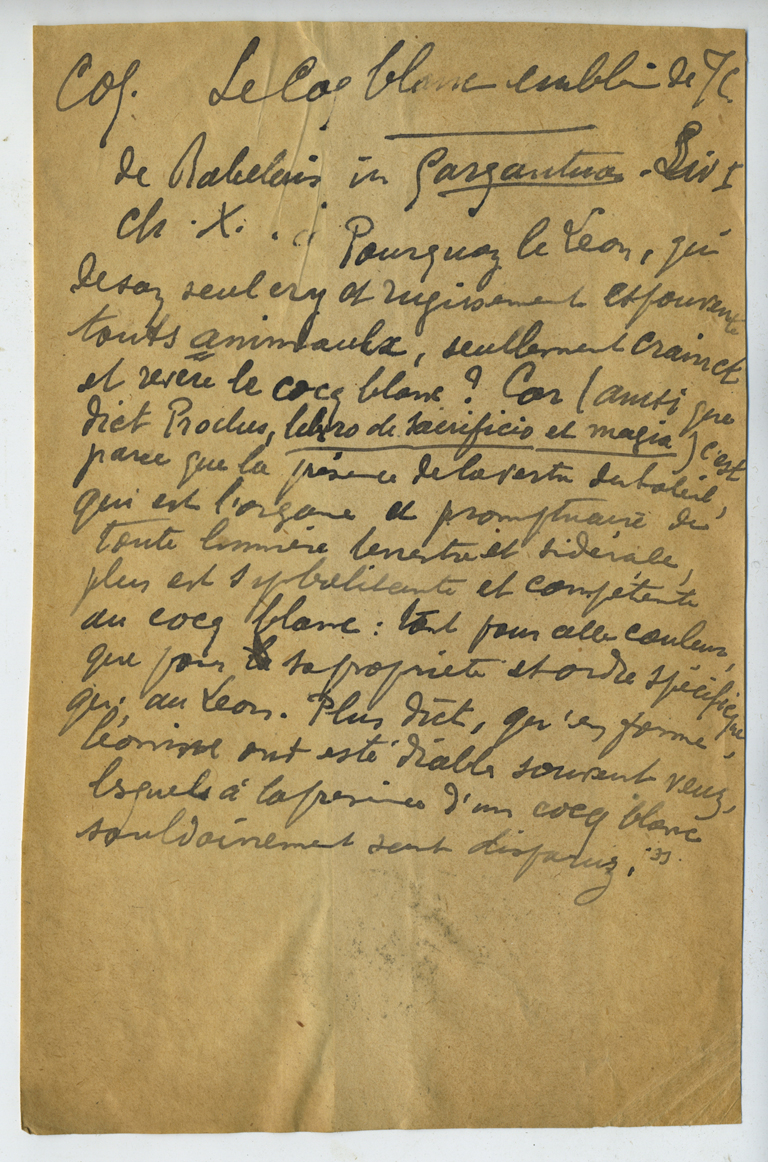 Coq. Le Coq blanc emblème de J.C.
de Rabelais in Gargantua - Liv I
ch. X. .. Pourquoy le Leon, qui
de son seul cry et rugissement espouvante
touts animaulx, seullement crainct
et revère le cocq blanc? Car (ainsi que
dict Proclus, libro de sacrificio et magia) c'est
parce que la présence de la vertu du Soleil,
qui est l'organe et promptuaire de
toute lumière terrestre et sidérale,
plus est symbolisante et compétente
au cocq blanc: tant pour celle couleur,
que pour sa propriété et ordre spécificque,
qu'au Leon. Plus dict, qu'en forme
léonine ont esté diables souvent veuz,
lesquels à la présence d'un cocq blanc
souldainement sont disparuz."